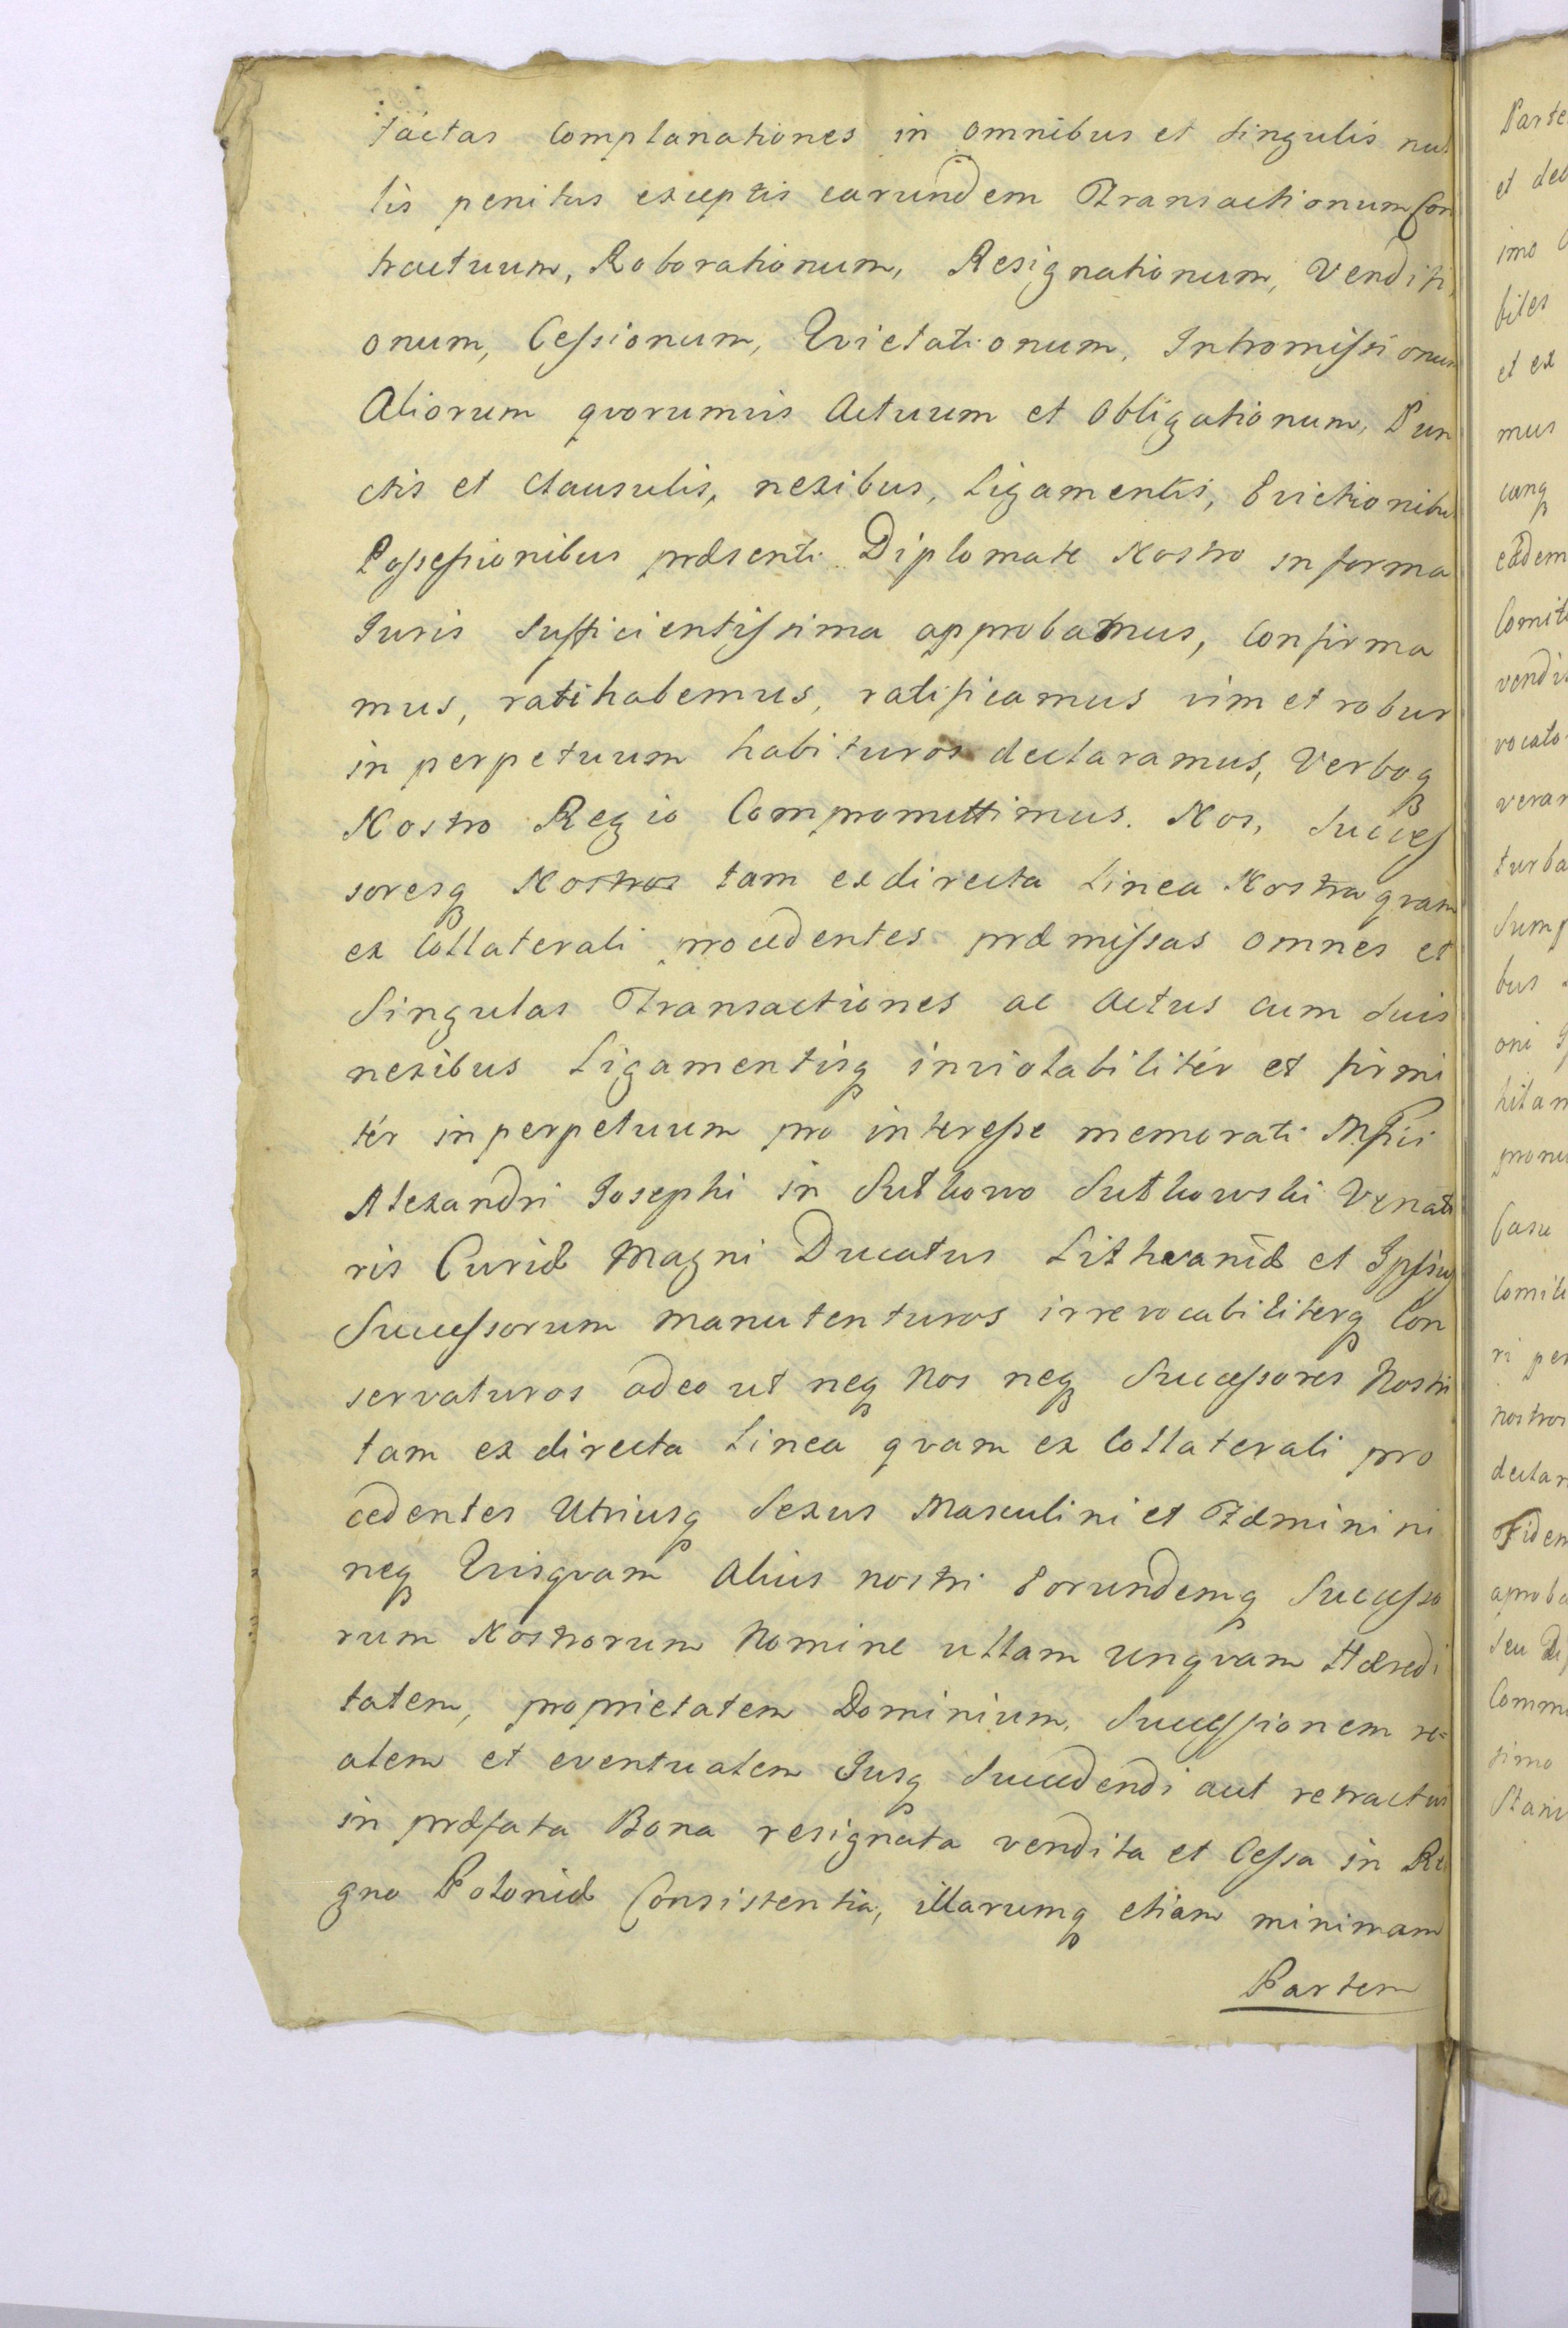 tactas Complanationes in omnibus et Singulis nul
lis penitus exceptis earundem Transactionum Con
tractuum, Roborationum, Resignationum, Venditi
onum, Ceſsionum, Qvietationum, Intromiſsionum
Aliorum qvorumvis Actuum et Obligationum, Pun
ctis et Clausulis, nexibus, Ligamentis, Evictionibus
Poſseſsionibus præsenti Diplomate Nostro in forma
Iuris Sufficientiſsima approbamus, Confirma
mus, ratihabemus, ratificamus vim et robur
in perpetuum habituros declaramus, Verboq
Nostro Regio Compromittimus. Nos, Succeſ
soresq Nostros tam ex directa Linea Nostra qvam
ex Collaterali procedentes præmiſsas omnes et
Singulas Transactiones ac Actus cum Suis
nexibus Ligamentisq inviolabilitér et firmi
tér in perpetuum pro intereſse memorati Mfici
Alexandri Iosephi in Sutkowo Sutkowski Venato
ris Curiæ Magni Ducatus Lithvaniæ et Ipſius
Succeſsorum manutenturos irrevocabiliterq Con
servaturos adeo ut neq Nos neq Succeſsores Nostri
tam ex directa Linea qvam ex Collaterali pro
cedentes Utriusq Sexus Masculini et Fæminini
neq Qvisqvam Alius nostri Eorundemq Succeſso
rum Nostrorum Nomine ullam Unqvam Hæredi
tatem, proprietatem Dominium, Succeſsionem re=
alem et eventualem Iusq Succedendi aut retractus
in præfata Bona resignata vendita et Ceſsa in Re
gno Poloniæ Consistentia, illarumq etiam minimam
Partem
Parte
et deb
imo
biles
et ex
mus
cunq
eadem
Comit
vendi
vocato
verar
turba
Sump
bus
oni
hitan
pronu
Casu
Comit
ri per
nostros
declar
Fidem
aproba
Seu Di
Comm
simo
Stani